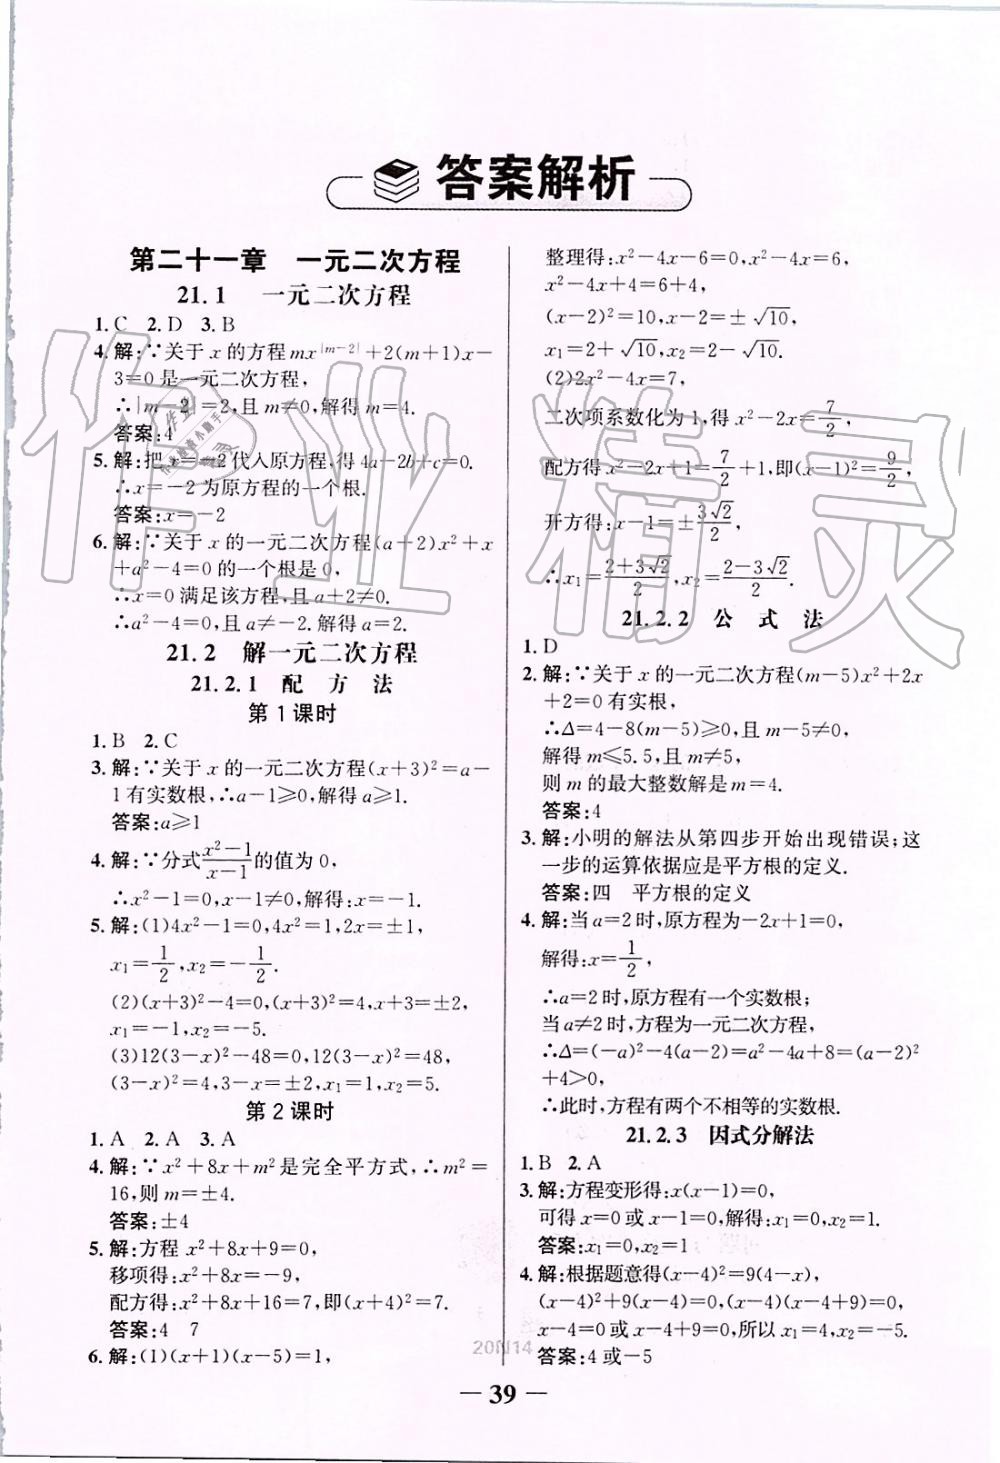 答案解析
第二十一章　一元二次方程
21.1　一元二次方程
1. C　2. D　3. B
4. 解:∵关于 x 的方程 mx^|m−2|+2(m+1)x−
3=0 是一元二次方程,
∴|m−2|=2,且 m≠0,解得 m=4.
答案:4
5. 解:把 x=−2代入原方程,得 4a−2b+c=0.
∴x=−2 为原方程的一个根.
答案:x=−2
6. 解:∵关于 x 的一元二次方程(a+2)x²+x
+a²−4=0 的一个根是 0,
∴x=0 满足该方程,且 a+2≠0.
∴a²−4=0,且 a≠−2.解得 a=2.
21.2　解一元二次方程
21.2.1　配　方　法
第1课时
1. B　2. C
3. 解:∵关于 x 的一元二次方程(x+3)²=a−
1有实数根,∴a−1≥0,解得 a≥1.
答案:a≥1
4. 解:∵分式(x²−1)/(x−1)的值为 0,
∴x²−1=0,x−1≠0,解得:x=−1.
5. 解:(1)4x²−1=0,4x²=1,2x=±1,
x₁=1/2,x₂=−1/2.
(2)(x+3)²−4=0,(x+3)²=4,x+3=±2,
x₁=−1,x₂=−5.
(3)12(3−x)²−48=0,12(3−x)²=48,
(3−x)²=4,3−x=±2,x₁=1,x₂=5.
第2课时
1. A　2. A　3. A
4. 解:∵x²+8x+m²是完全平方式,∴m²=
16,则 m=±4.
答案:±4
5. 解:方程 x²+8x+9=0,
移项得:x²+8x=−9,
配方得:x²+8x+16=7,即(x+4)²=7.
答案:4　7
6. 解:(1)(x+1)(x−5)=1,
整理得:x²−4x−6=0,x²−4x=6,
x²−4x+4=6+4,
(x−2)²=10,x−2=±√10,
x₁=2+√10,x₂=2−√10.
(2)2x²−4x=7,
二次项系数化为 1,得 x²−2x=7/2,
配方得 x²−2x+1=7/2+1,即(x−1)²=9/2,
开方得:x−1=±3√2/2,
∴x₁=(2+3√2)/2,x₂=(2−3√2)/2.
21.2.2　公　式　法
1. D
2. 解:∵关于 x 的一元二次方程(m−5)x²+2x
+2=0 有实根,
∴Δ=4−8(m−5)≥0,且 m−5≠0,
解得 m≤5.5,且 m≠5,
则 m 的最大整数解是 m=4.
答案:4
3. 解:小明的解法从第四步开始出现错误;这
一步的运算依据应是平方根的定义.
答案:四　平方根的定义
4. 解:当 a=2 时,原方程为−2x+1=0,
解得:x=1/2,
∴a=2时,原方程有一个实数根;
当 a≠2 时,方程为一元二次方程,
∴Δ=(−a)²−4(a−2)=a²−4a+8=(a−2)²
+4>0,
∴此时,方程有两个不相等的实数根.
21.2.3　因式分解法
1. B　2. A
3. 解:方程变形得:x(x−1)=0,
可得 x=0或 x−1=0,解得:x₁=0,x₂=1.
答案:x₁=0,x₂=1
4. 解:根据题意得(x−4)²=9(4−x),
(x−4)²+9(x−4)=0,(x−4)(x−4+9)=0,
x−4=0或 x−4+9=0,所以 x₁=4,x₂=−5.
答案:4 或−5
20N14
— 39 —
作业精灵